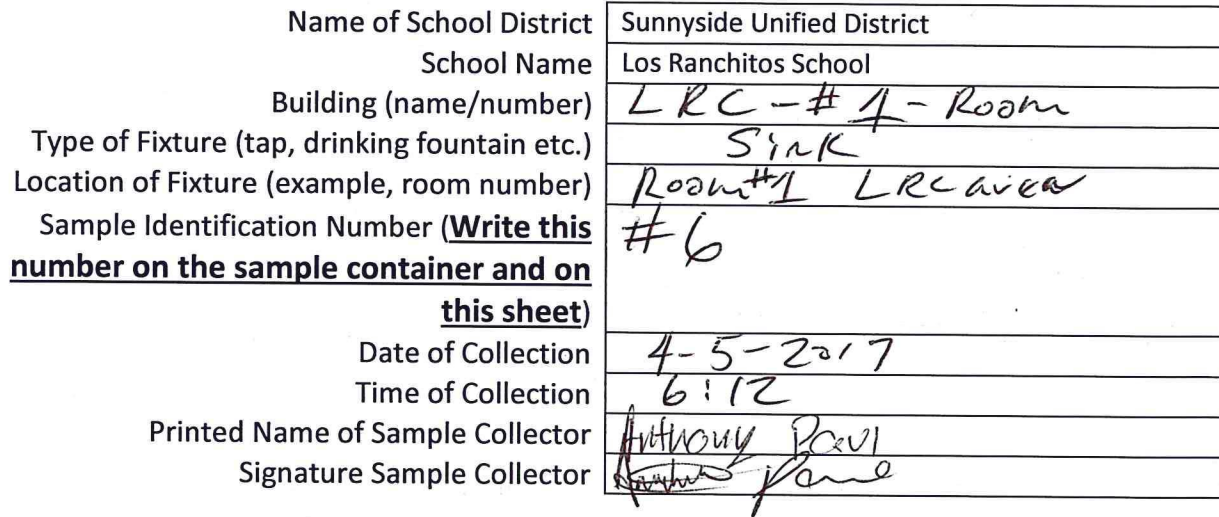 Name of School District Sunnyside Unified District
School Name Los Ranchitos School
Building (name/number) LRC - # 1 - Room
Type of Fixture (tap, drinking fountain etc.) Sink
Location of Fixture (example, room number) Room #1 LRC area
Sample Identification Number (Write this #6
number on the sample container and on
this sheet)
Date of Collection 4-5-2017
Time of Collection 6:12
Printed Name of Sample Collector Anthony Paul
Signature Sample Collector